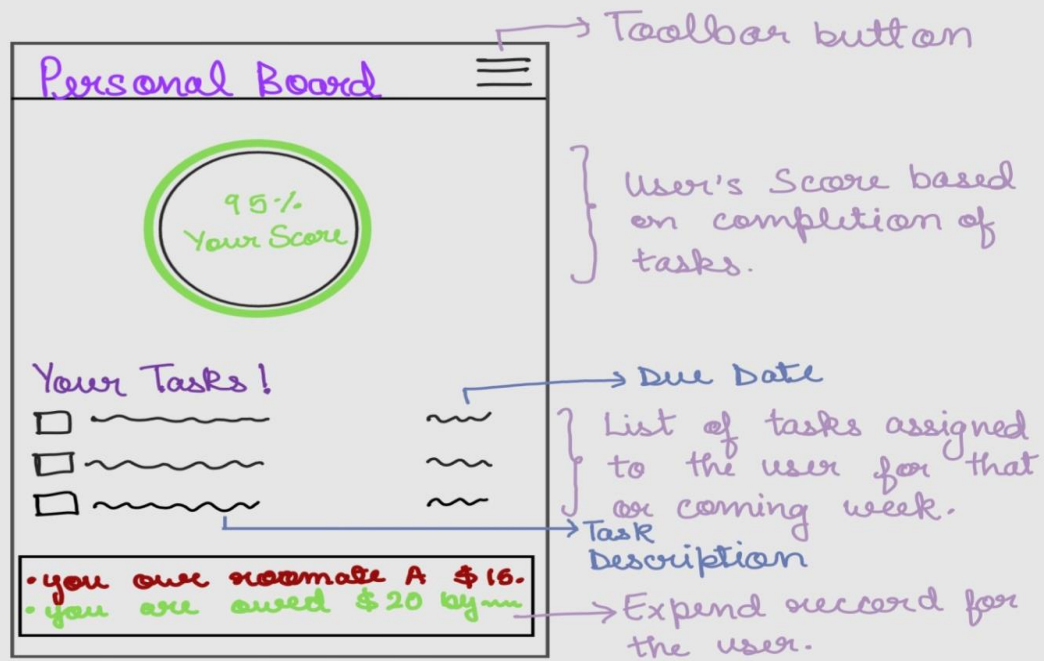 Toolbar button
Personal Board
95%
Your Score
User's Score based
on completion of
tasks.
Your Tasks!
Due Date
List of tasks assigned
to the user for that
or coming week.
Task
Description
• you owe roomate A $15.
• you are owed $20 by
Expend reccord for
the user.